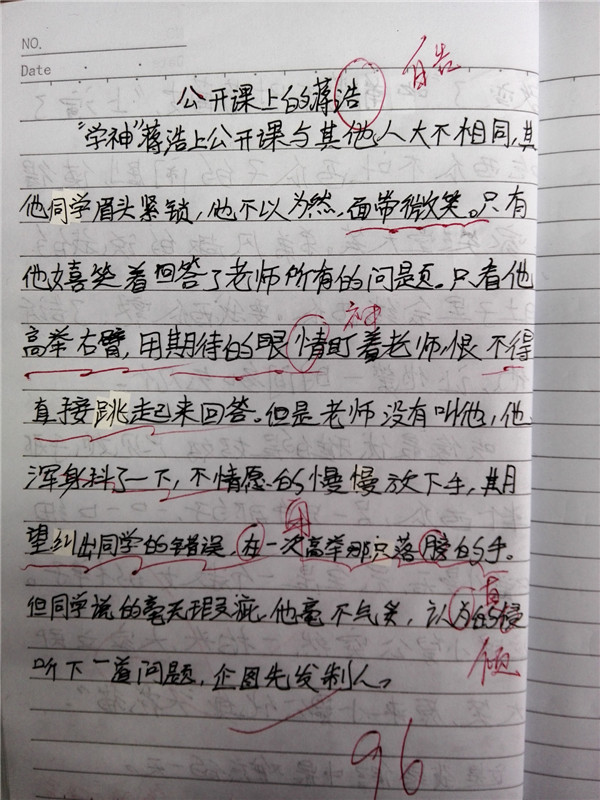 NO.
Date
公开课上的蒋浩
“学神”蒋浩上公开课与其他人大不相同,其
他同学眉头紧锁,他不以为然,面带微笑。只有
他嬉笑着回答了老师所有的问题。只看他
神
高举右臂,用期待的眼情盯着老师,恨不得
直接跳起来回答。但是老师没有叫他,他
浑身抖了一下,不情愿的慢慢放下手,期
再
望纠出同学的错误,在一次高举那只落的手。
但同学说的毫无瑕疵,他毫不气,认为的侵
真
倾
听下一道问题,企图先发制人。
96